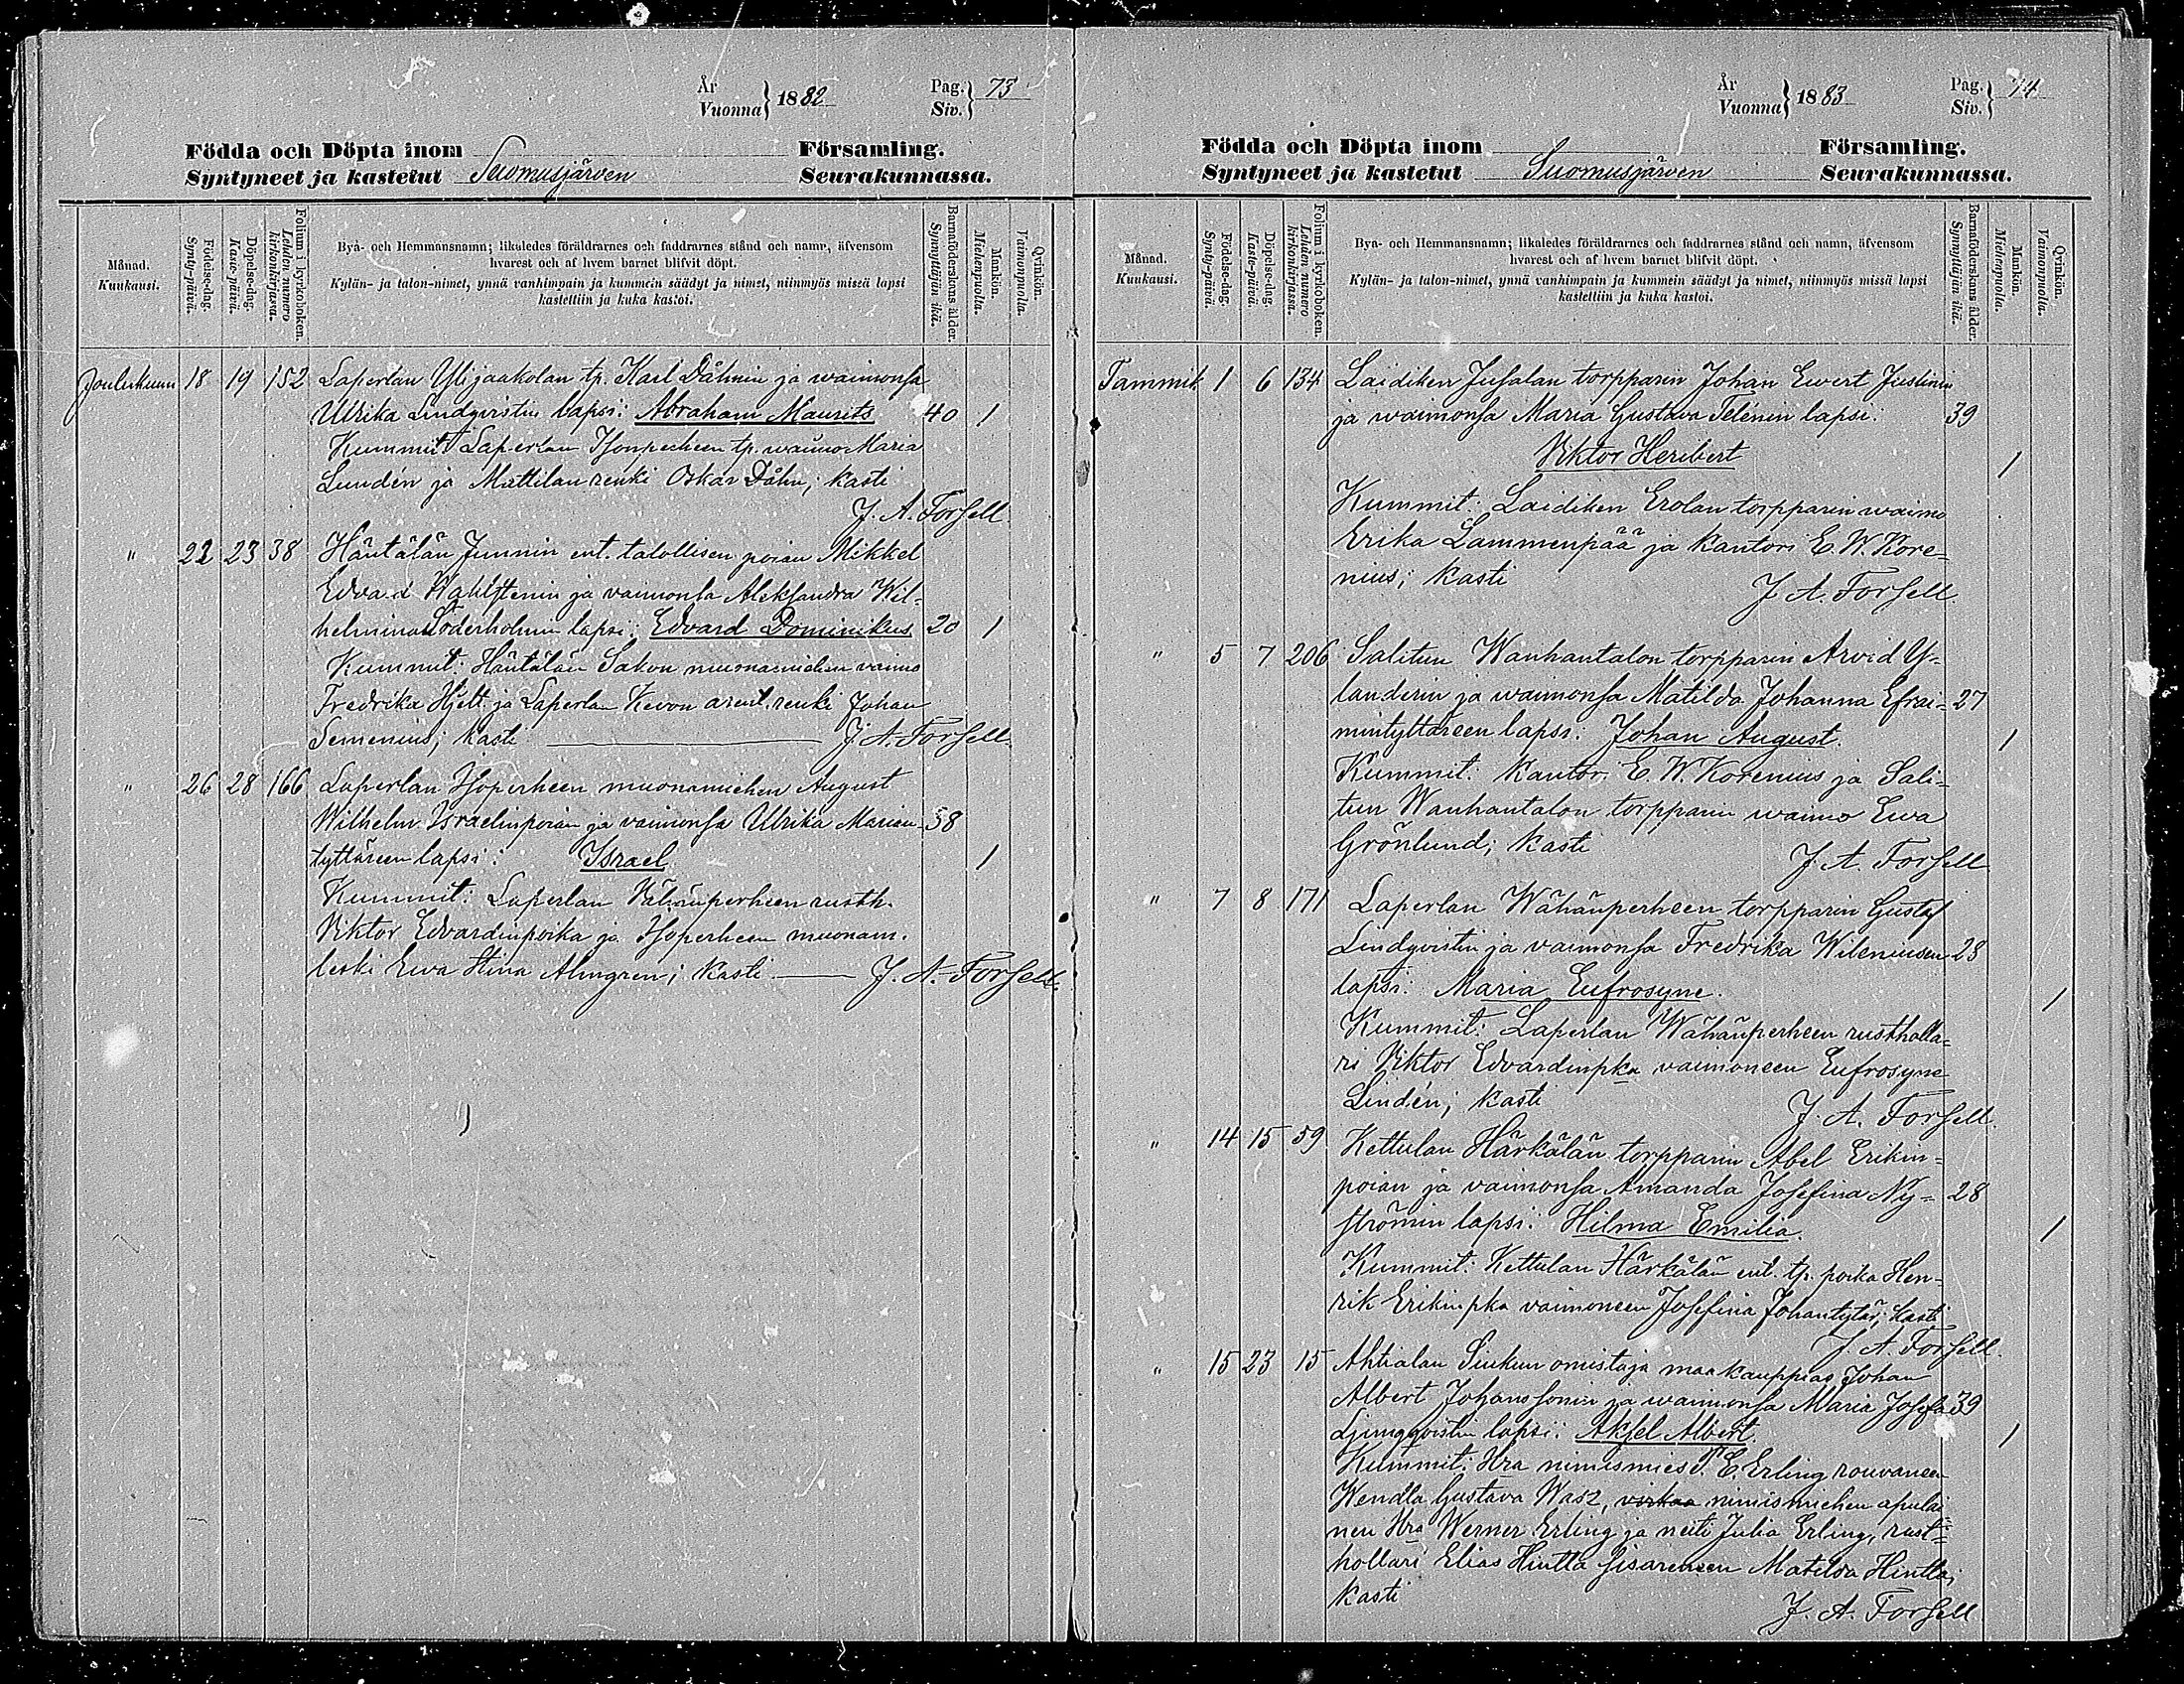 År
Vuonna } 1882 Pag. Siv. } 73
Födda och Döpta inom Församling.
Syntyneet ja kastetut Suomusjärven Seurakunnassa.
Månad. Kuukausi.
Födelse-dag. Synty-päivä.
Döpelse-dag. Kaste-päivä.
Folium i kyrkoboken. Lehden numero kirkonkirjassa.
Bya- och Hemmansnamn; likaledes föräldrarnes och faddrarnes stånd och namn, äfvensom
hvarest och af hvem barnet blifvit döpt.
Kylän- ja talon-nimet, ynnä vanhimpain ja kummein säädyt ja nimet, niinmyös missä lapsi
kastettiin ja kuka kastoi.
Barnaföderskans ålder. Synnyttäjän ikä.
Mankön. Miehenpuolta.
Qvinkön. Vaimonpuolta.
Joulukuun 18 19 152 Laperlan Ylijaakolan tp. Karl Dåhnin ja waimonsa
Ulrika Lindqvistin lapsi: Abraham Maurits 40 1
Kummit Laperlan Isonperheen tp. waimo Maria
Lundén ja Mattilan renki Oskar Dåhn; kasti
J. A. Forsell
" 22 23 38 Häntälän Junnin ent. talollisen poian Mikkel
Edvard Wahlstenin ja vaimonsa Aleksandra Wil-
helmina Söderholmin lapsi: Edvard Dominikus 20 1
Kummit: Häntälän Sakon muonamiehen vaimo
Fredrika Hjelt ja Laperlan Kevon arent. renki Johan
Semenius; kasti J. A. Forsell.
" 26 28 166 Laperlan Isoperheen muonamiehen August
Wilhelm Israelinpoian ja vaimonsa Ulrika Marian- 38
tyttären lapsi: Israel 1
Kummit: Laperlan Vähänperheen rusth.
Viktor Edvardinpoika ja Isoperheen muonam.
leski Ewa Stina Almgren; kasti J. A. Forsell.
År
Vuonna } 1883 Pag. Siv. } 74
Födda och Döpta inom Församling.
Syntyneet ja kastetut Suomusjärven Seurakunnassa.
Månad. Kuukausi.
Födelse-dag. Synty-päivä.
Döpelse-dag. Kaste-päivä.
Folium i kyrkoboken. Lehden numero kirkonkirjassa.
Bya- och Hemmansnamn; likaledes föräldrarnes och faddrarnes stånd och namn, äfvensom
hvarest och af hvem barnet blifvit döpt.
Kylän- ja talon-nimet, ynnä vanhimpain ja kummein säädyt ja nimet, niinmyös missä lapsi
kastettiin ja kuka kastoi.
Barnaföderskans ålder. Synnyttäjän ikä.
Mankön. Miehenpuolta.
Qvinkön. Vaimonpuolta.
Tammik. 1 6 134 Laidiken Jusalan torpparin Johan Ewert Justinin
ja waimonsa Maria Gustava Telénin lapsi: 39
Viktor Heribert 1
Kummit: Laidiken Erolan torpparin waimo
Erika Lammenpää ja kantori E. W. Kore-
nius; kasti
J. A. Forsell.
" 5 7 206 Salitun Wanhantalon torpparin Arvid Y-
landerin ja waimonsa Matilda Johanna Efrai- 27
mintyttäreen lapsi: Johan August. 1
Kummit: kantori E. W. Korenius ja Sali-
tun Wanhantalon torpparin waimo Ewa
Grönlund; kasti
J. A. Forsell
" 7 8 171 Laperlan Wähänperheen torpparin Gustaf
Lindqvistin ja vaimonsa Fredrika Wileniusen 28
lapsi: Maria Eufrosyne. 1
Kummit: Laperlan Wähänperheen rustholla-
ri Viktor Edvardinpka vaimoneen Eufrosyne
Lindén; kasti
J. A. Forsell.
" 14 15 59 Kettulan Härkälän torpparin Abel Erikin-
poian ja vaimonsa Amanda Josefina Ny- 28
strömin lapsi: Hilma Emilia. 1
Kummit: Kettulan Härkälän ent. tp. poika Hen-
rik Erikinpka vaimoneen Josefina Johantytär; kasti
J. A. Forsell.
" 15 23 15 Ahtialan Sinkun omistaja maakauppias Johan
Albert Johanssonin ja waimonsa Maria Josefa 39
Ljungqvistin lapsi: Aksel Albert. 1
Kummit: Hra nimismies P. E. Erling rouvaneen
Wendla Gustava Wasz, virkaa nimismiehen apulai-
nen Hra Werner Erling ja neiti Julia Erling, rust-
hollari Elias Hintta sisarensen Matilda Hintta;
kasti
J. A. Forsell